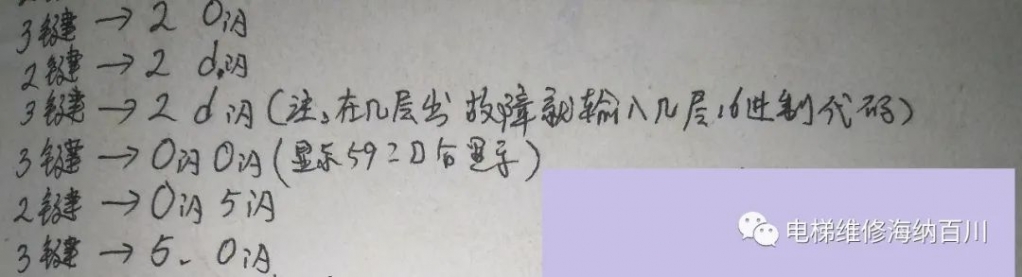 3键 → 2 0闪
2键 → 2 d.闪
3键 → 2 d闪(注:在几层出故障就输入几层16进制代码)
3键 → 0闪0闪(显示592D后显示)
2键 → 0闪5闪
3键 → 5. 0闪
电梯维修海纳百川